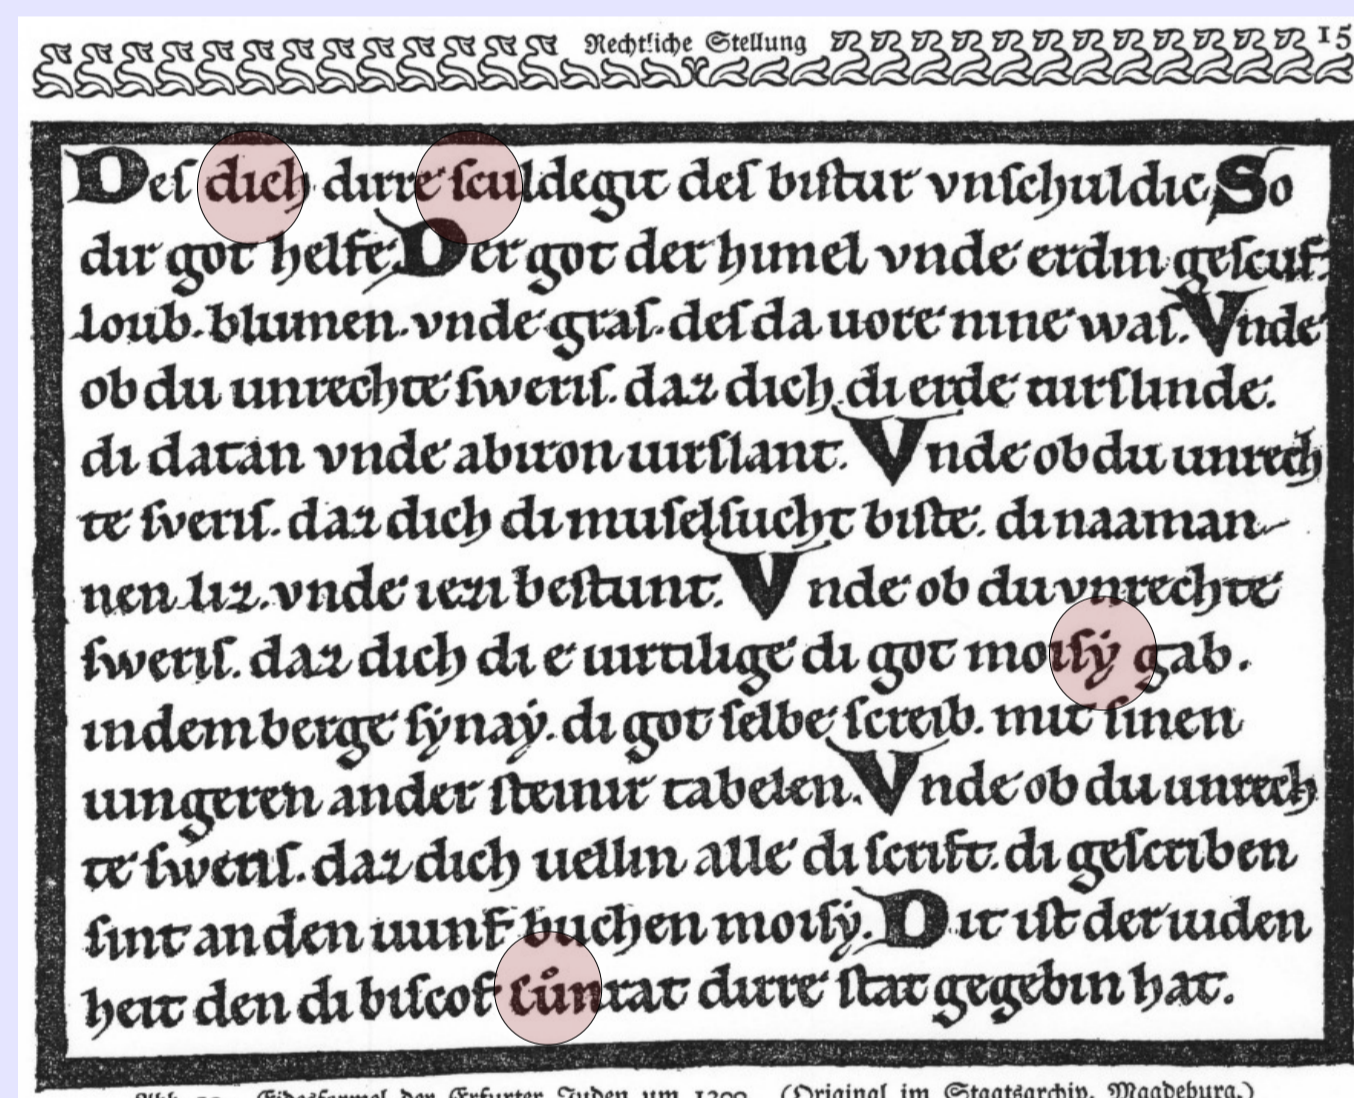 Rechtliche Stellung 15
Deſ dich dirre ſculdegit deſ biſtur vnſchuldic. So
dir got helfe. Der got der himel vnde erdin geſcuf.
loub. blumen. vnde graſ. deſ da uore nine waſ. Vnde
ob du unrechte ſweriſ. daz dich di erde uirſlinde.
di datan vnde abiron uirſlant. Vnde ob du unrech
te ſveriſ. daz dich di muſelſucht biſte. di naaman
nen liz. vnde iezi beſtunt. Vnde ob du vnrechte
ſweriſ. daz dich di e uirtilige di got moiſẏ gab.
indem berge ſẏnaẏ. di got ſelbe ſcreib. mit ſinen
uingeren an der ſteinir tabelen. Vnde ob du unrech
te ſweriſ. daz dich uellin alle di ſcrift. di geſcriben
ſint an den uunf buchen moiſẏ. Dit iſt der iuden
heit den di biſcof cůnrat dirre ſtat gegebin hat.
Eidesformel der Erfurter Juden um 1200. (Original im Staatsarchiv, Magdeburg.)